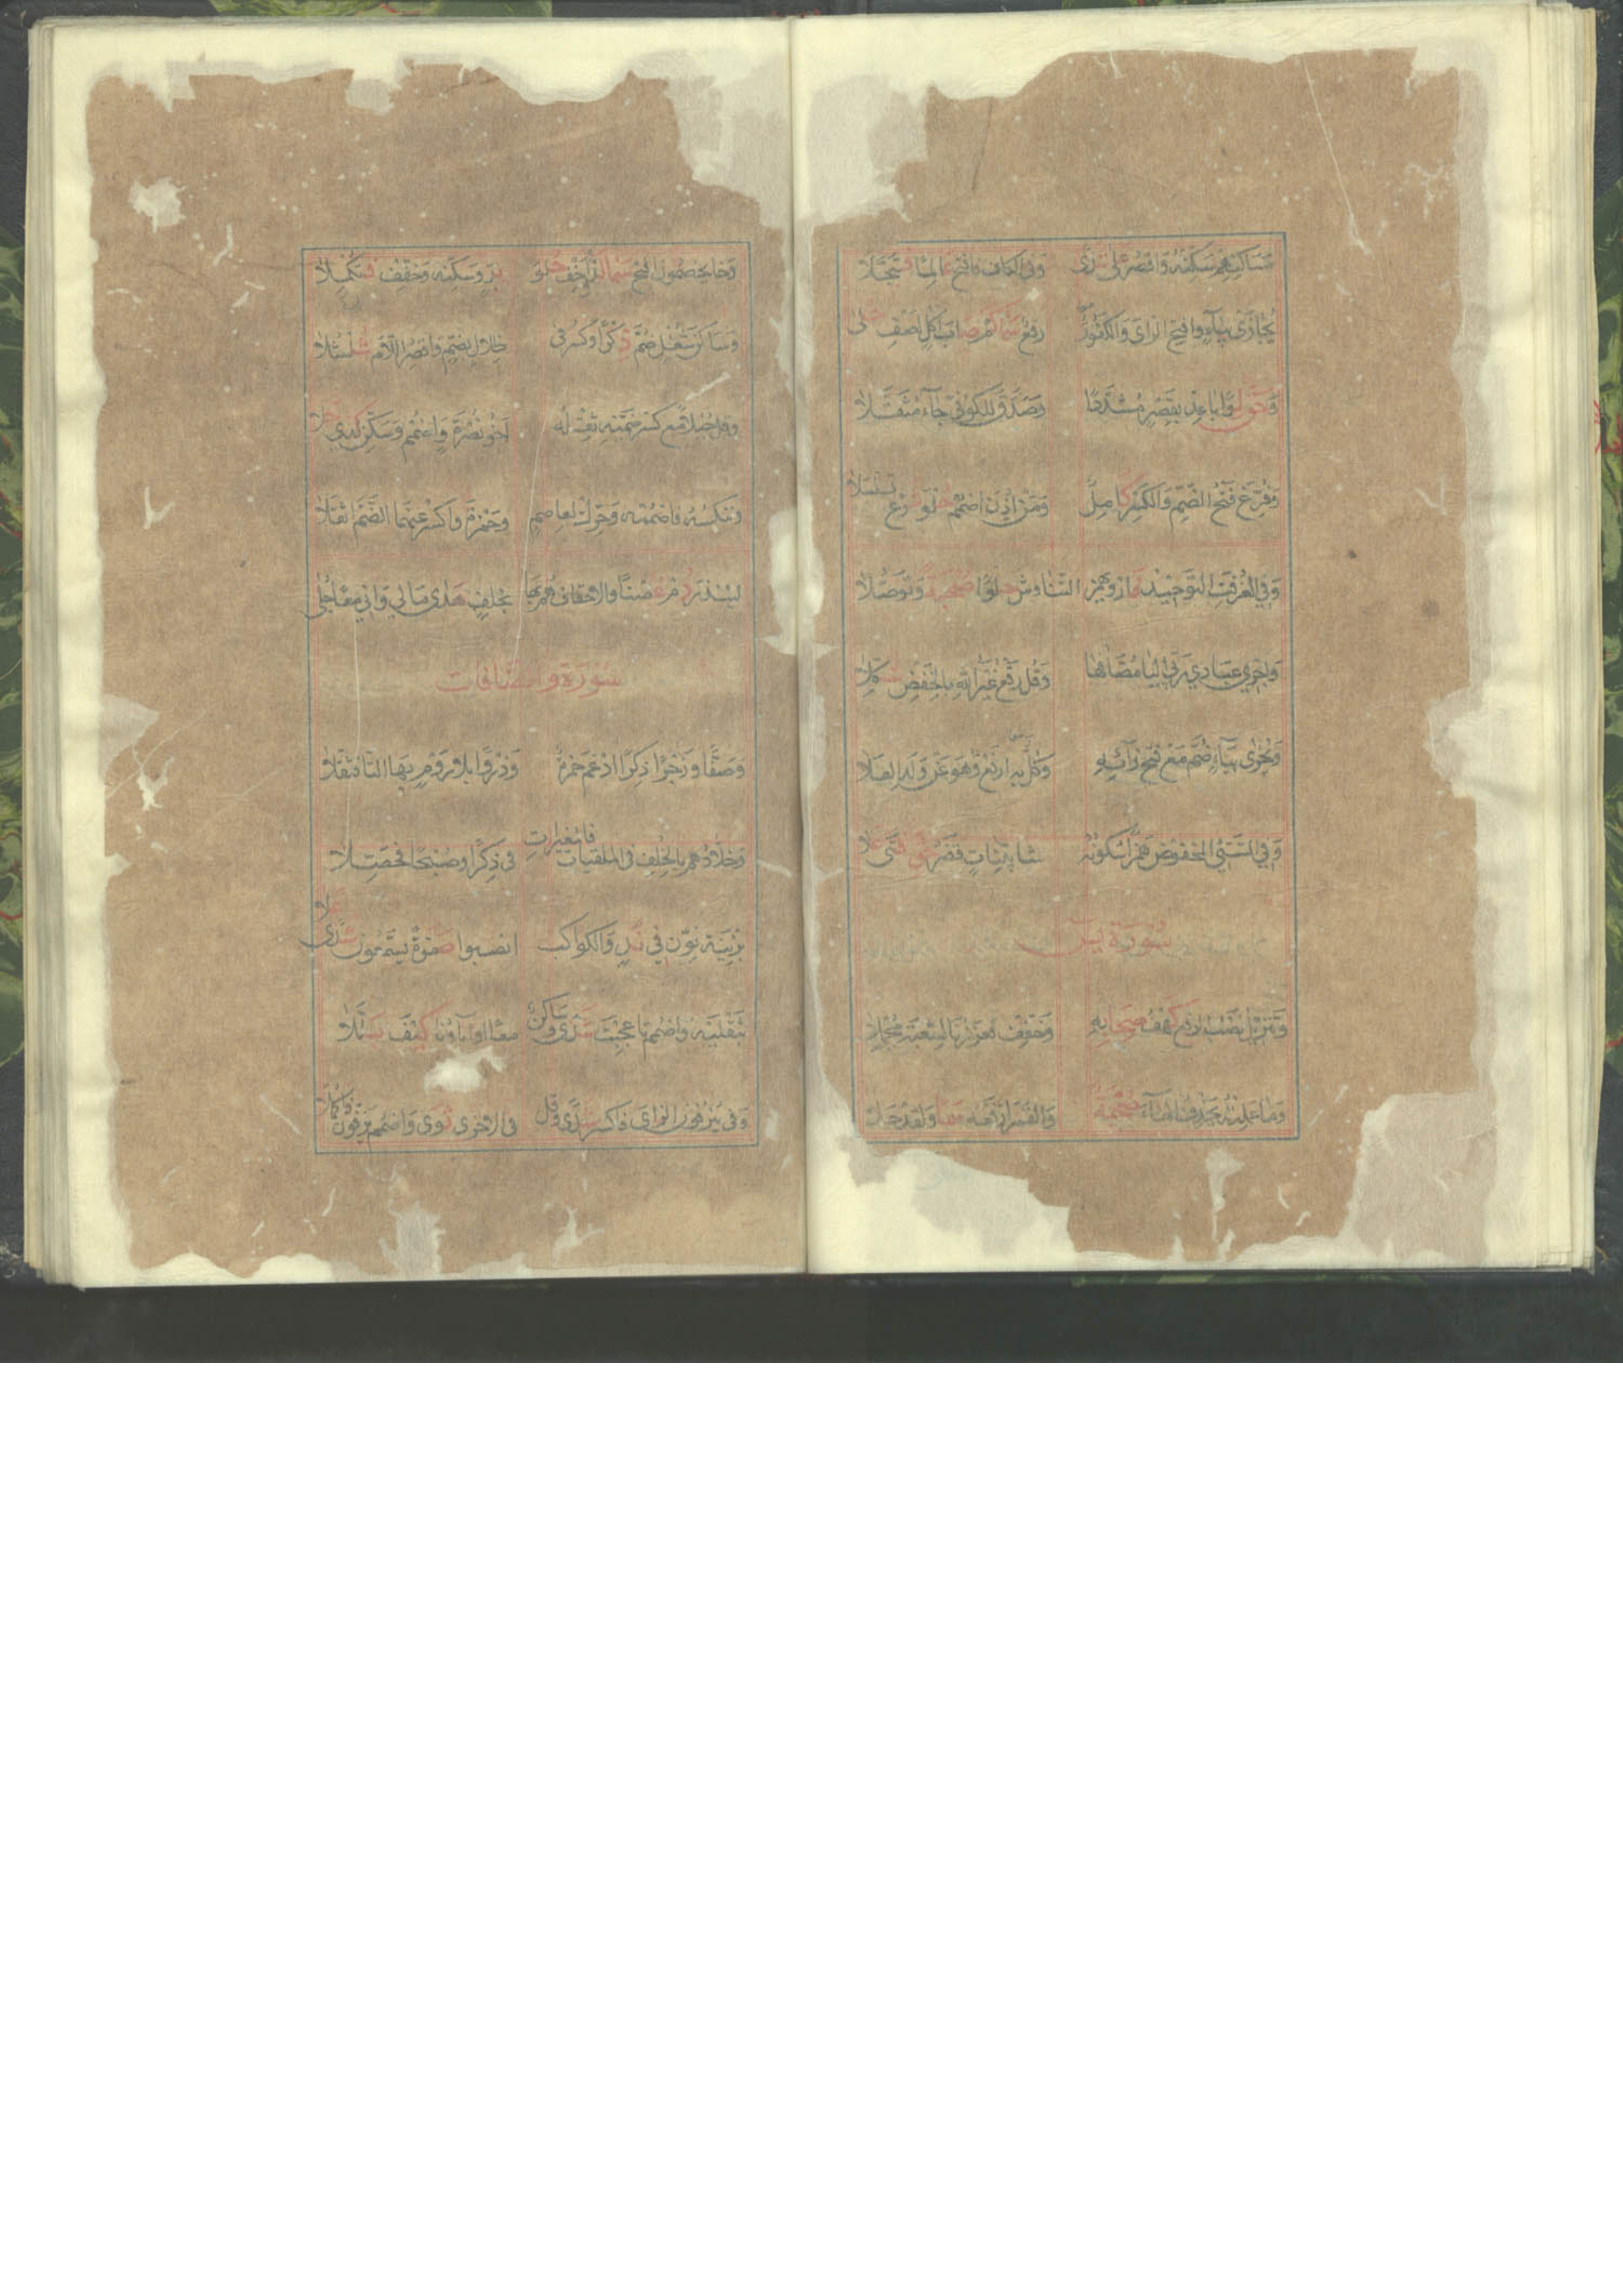 مساكنهم سكنه واقصر على شذى وفي الكاف فافتح عالما فتبجلا
نجازي بياء وافتح الزاي والكفور رفع سما كم صاب اكل اضف حلى
وحق لوا باعد بقصر مشددا وصدق للكوفي جاء مثقلا
وفزع فتح الضم والكسر كامل ومن اذن اضمم حلو شرع تسلسلا
وفي الغرفة التوحيد فاز ويهمز التناوش حلوا صحبة وتوصلا
واجري عبادي ربي اليا مضافها وقل رفع غير الله بالخفض شكلا
ونجزي بياء ضم مع فتح زايه وكل به ارفع وهو عن ولد العلا
وفي السيئ المخفوض همزا سكونه فشا بينات قصر حق فتى علا
سورة يس
وتنزيل نصب الرفع كهف صحابه وخفف فعززنا لشعبة محملا
وما عملته يحذف الهاء صحبة والقمر ارفعه سما ولقد حلا
وخا يخصمون افتح سما لذ واخف حلو بر وسكنه وخفف فتكملا
وساكن شغل ضم ذكرا وكسر في ظلال بضم واقصر اللام شلشلا
وقل جبلا مع كسر ضميه ثقله اخو نصرة واضمم وسكن كذي حلا
وننكسه فاضممه وحرك لعاصم وحمزة واكسر عنهما الضم اثقلا
لينذر دم غصنا والاحقاف هم بها بخلف هدى مالي واني معا حلى
سورة والصافات
وصفا وزجرا ذكرا ادغم حمزة وذروا بلا روم بها التا فثقلا
وخلادهم بالخلف في الملقيات فالمغيرات في ذكرا وصبحا فحصلا
بزينة نون في ند والكواكب انصبوا صفوة يسمعون شذى علا
بثقليه واضمم تا عجبت شذى وساكن معا او اباؤنا كيف بللا
وفي ينزفون الزاي فاكسر شذى وقل في الاخرى ثوى واضمم يزفون فاكملا